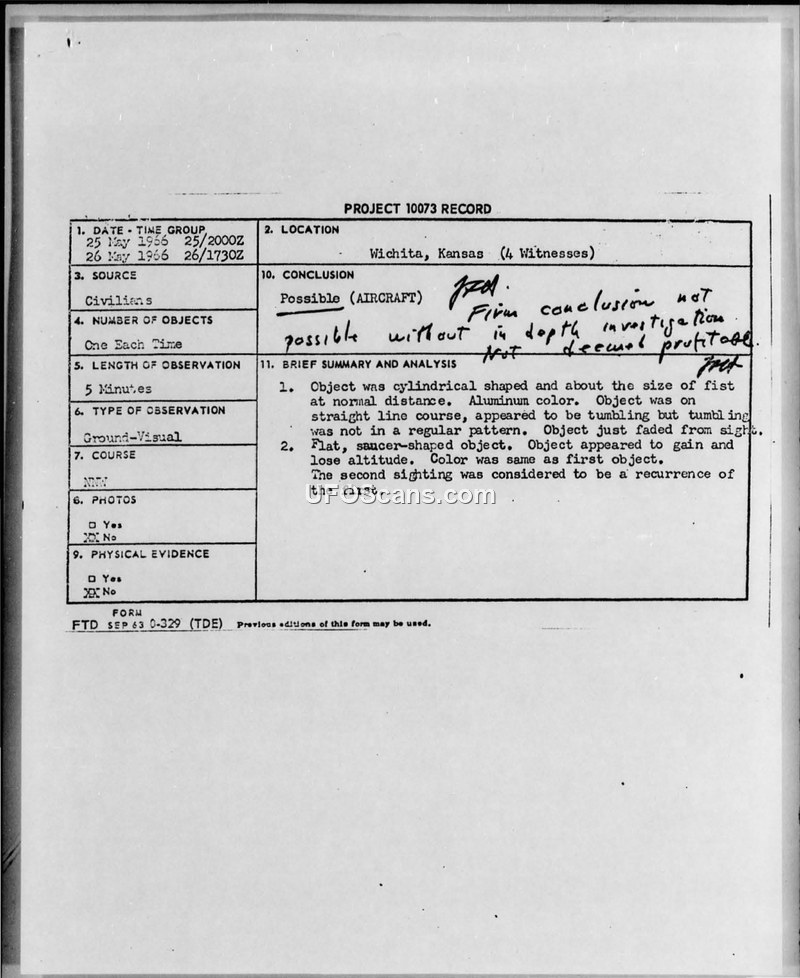 PROJECT 10073 RECORD
1. DATE - TIME GROUP
25 May 1966 25/2000Z
26 May 1966 26/1730Z
2. LOCATION
Wichita, Kansas (4 Witnesses)
3. SOURCE
Civilians
10. CONCLUSION
Possible (AIRCRAFT)
Firm conclusion not
possible without in depth investigation
Not deemed profitable.
4. NUMBER OF OBJECTS
One Each Time
5. LENGTH OF OBSERVATION
5 Minutes
11. BRIEF SUMMARY AND ANALYSIS
1. Object was cylindrical shaped and about the size of fist
at normal distance. Aluminum color. Object was on
straight line course, appeared to be tumbling but tumbling
was not in a regular pattern. Object just faded from sight.
2. Flat, saucer-shaped object. Object appeared to gain and
lose altitude. Color was same as first object.
The second sighting was considered to be a recurrence of
the first.
6. TYPE OF OBSERVATION
Ground-Visual
7. COURSE
8. PHOTOS
□ Yes
XX No
9. PHYSICAL EVIDENCE
□ Yes
XX No
FORM
FTD SEP 63 0-329 (TDE) Previous editions of this form may be used.
UFOScans.com